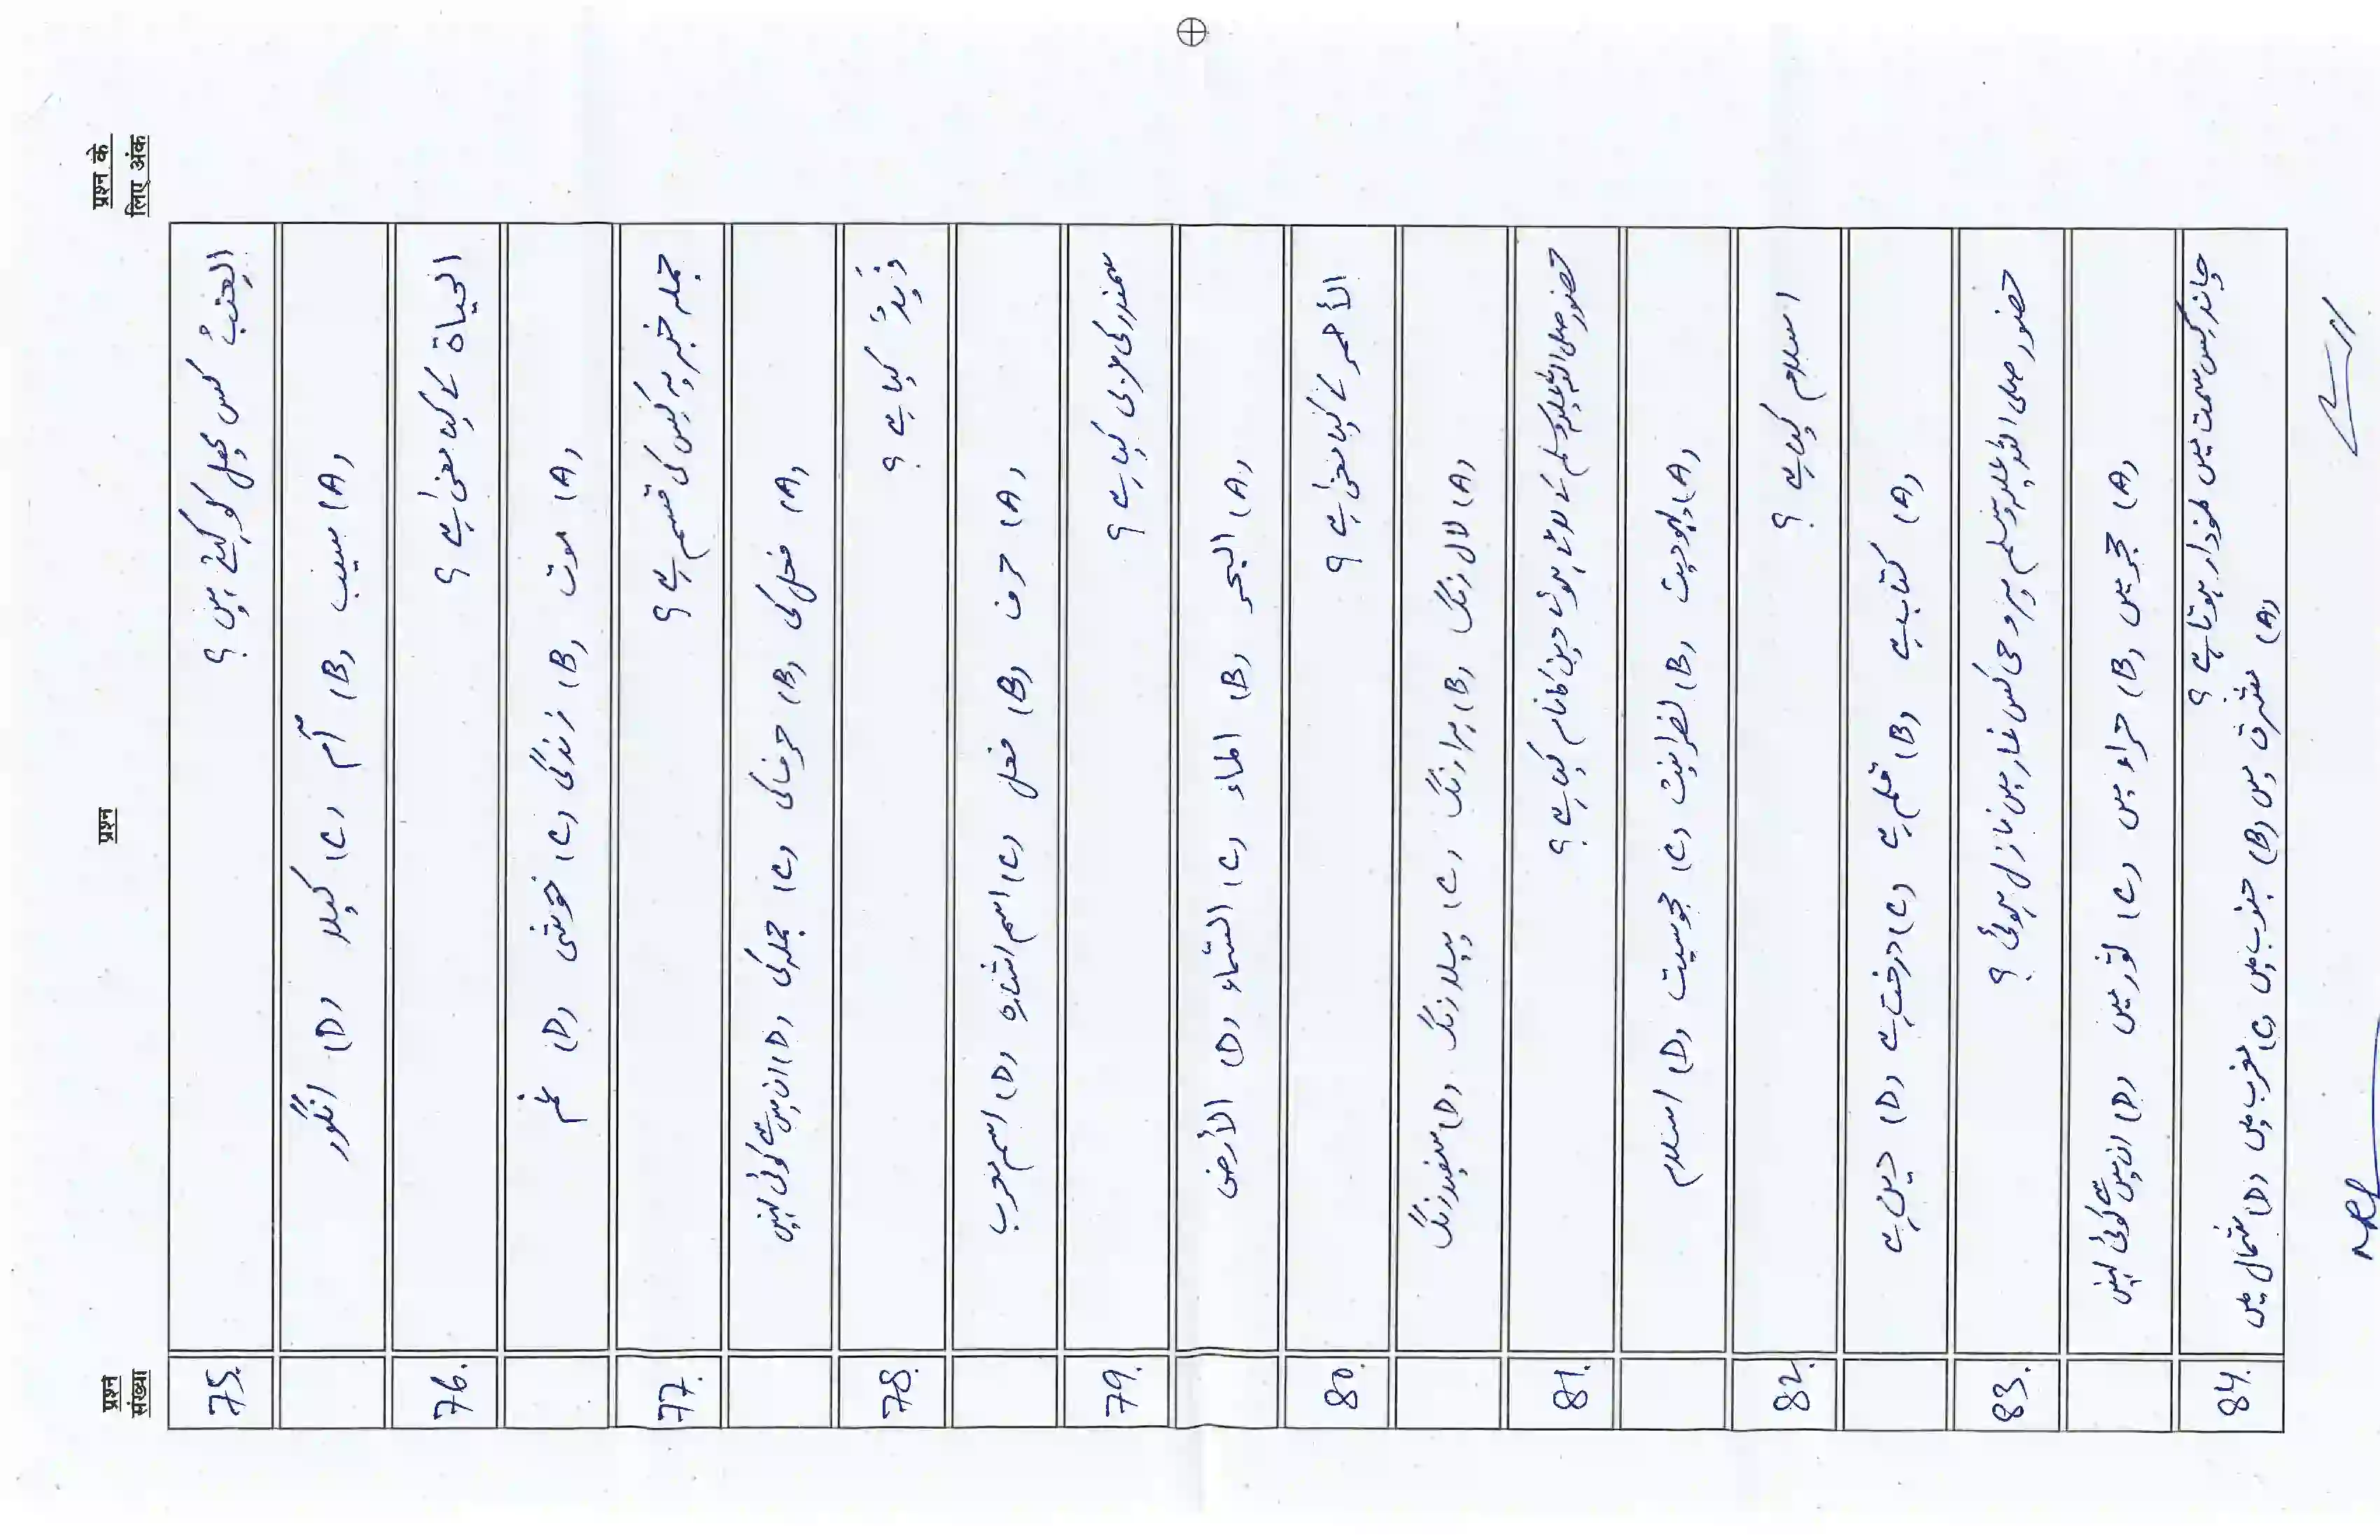 प्रश्न संख्या
प्रश्न
प्रश्न के लिए अंक
75. العنبُ کس پھل کو کہتے ہیں ؟
(A) سیب (B) آم (C) کیلا (D) انگور
76. الحیاۃ کے کیا معنیٰ ہے ؟
(A) موت (B) زندگی (C) خوشی (D) غم
77. جملہ خبریہ کس کی قسم ہے ؟
(A) فعل کی (B) حرف کی (C) جملہ کی (D) ان میں سے کوئی نہیں
78. زَیدٌ کیا ہے ؟
(A) حرف (B) فعل (C) اسم اشارہ (D) اسم معرب
79. سمندر کی عربی کیا ہے ؟
(A) البحر (B) الماء (C) السّماء (D) الأرض
80. الأحمر کے کیا معنیٰ ہے ؟
(A) لال رنگ (B) ہرا رنگ (C) پیلا رنگ (D) سفید رنگ
81. حضور صلی اللہ علیہ وسلم کے لائے ہوئے دین کا نام کیا ہے ؟
(A) یہودیت (B) نصرانیت (C) مجوسیت (D) اسلام
82. اسلام کیا ہے ؟
(A) کتاب ہے (B) قلم ہے (C) درخت ہے (D) دین ہے
83. حضور صلی اللہ علیہ وسلم پر وحی کس غار میں نازل ہوئی ؟
(A) حجر میں (B) حراء میں (C) ثور میں (D) ان میں سے کوئی نہیں
84. چاند کس سمت میں نمودار ہوتا ہے ؟
(A) مشرق میں (B) جنوب میں (C) مغرب میں (D) شمال میں